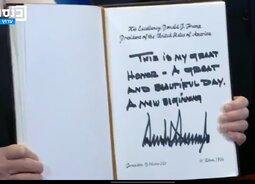 כנסת
His Excellency Donald J. Trump
President of the United States of America
THIS IS MY GREAT
HONOR - A GREAT
AND BEAUTIFUL DAY.
A NEW BIGINING
Jerusalem